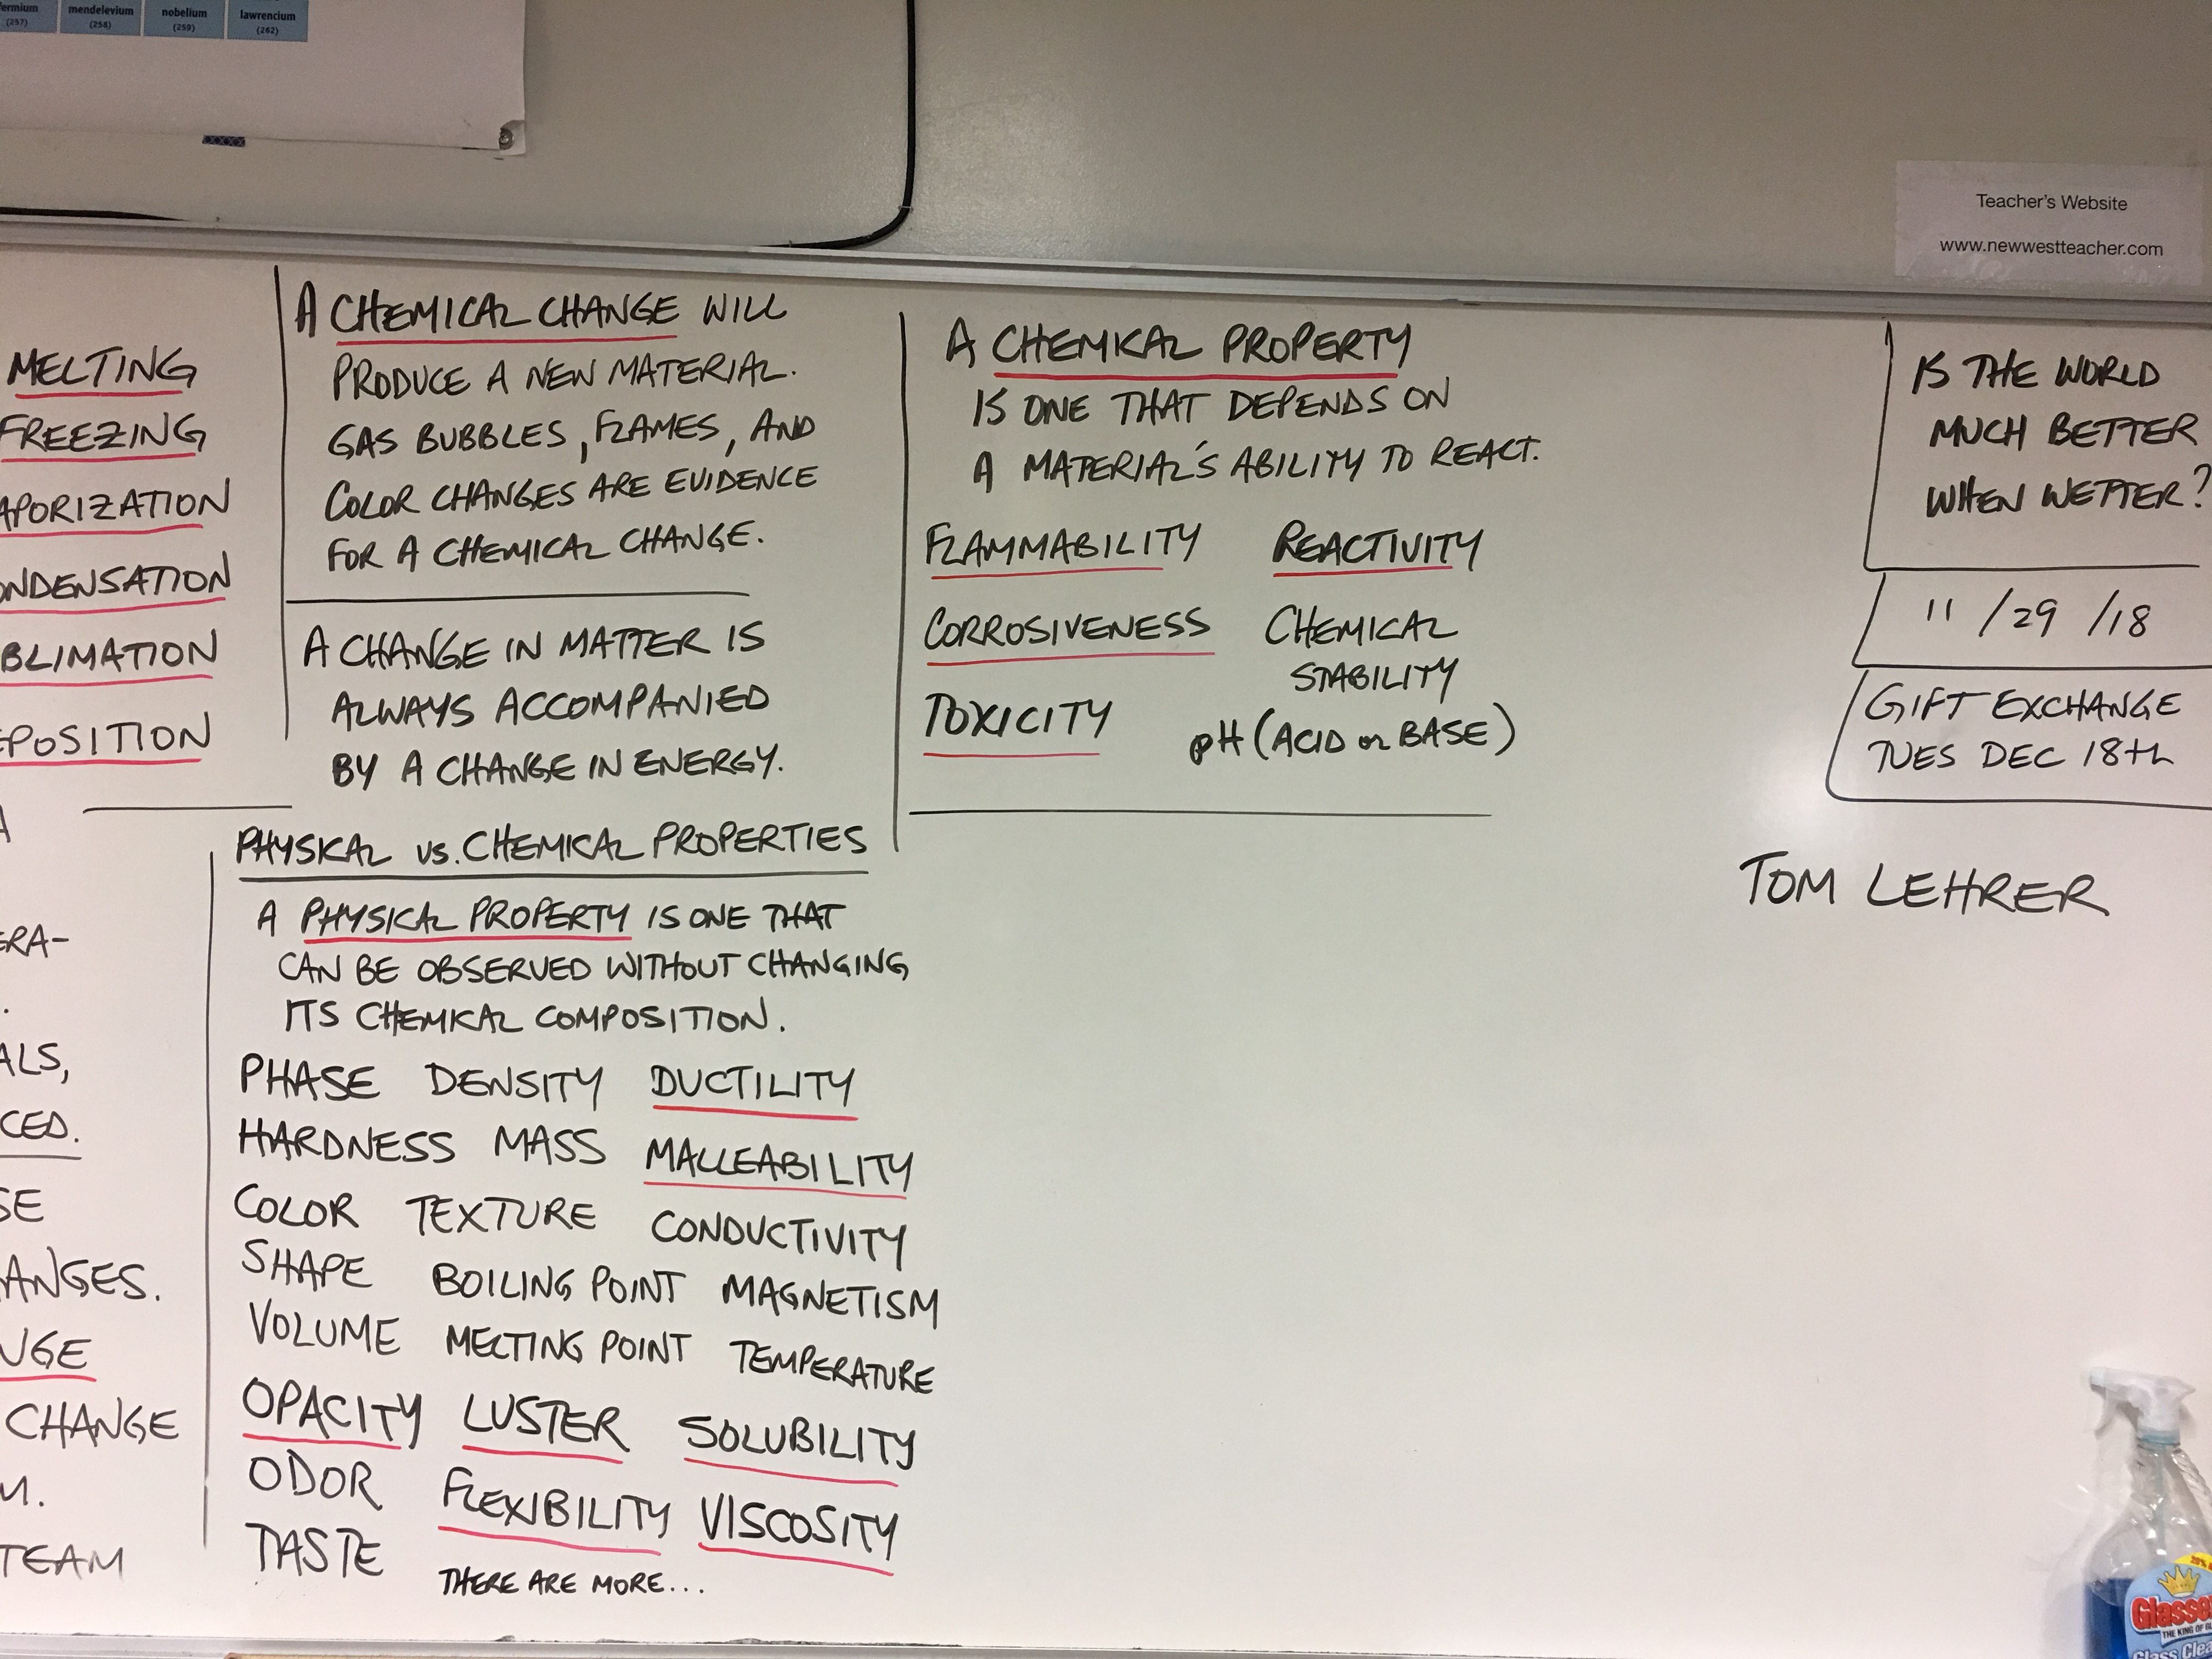 fermium
(257)
mendelevium
(258)
nobelium
(259)
lawrencium
(262)
Teacher's Website
www.newwestteacher.com
MELTING
FREEZING
APORIZATION
ONDENSATION
BLIMATION
EPOSITION
A
ERA-
.
ALS,
CED.
SE
ANGES.
NGE
CHANGE
M.
TEAM
A CHEMICAL CHANGE WILL
PRODUCE A NEW MATERIAL.
GAS BUBBLES, FLAMES, AND
COLOR CHANGES ARE EVIDENCE
FOR A CHEMICAL CHANGE.
A CHANGE IN MATTER IS
ALWAYS ACCOMPANIED
BY A CHANGE IN ENERGY.
PHYSICAL vs. CHEMICAL PROPERTIES
A PHYSICAL PROPERTY IS ONE THAT
CAN BE OBSERVED WITHOUT CHANGING
ITS CHEMICAL COMPOSITION.
PHASE DENSITY DUCTILITY
HARDNESS MASS MALLEABILITY
COLOR TEXTURE CONDUCTIVITY
SHAPE BOILING POINT MAGNETISM
VOLUME MELTING POINT TEMPERATURE
OPACITY LUSTER SOLUBILITY
ODOR FLEXIBILITY VISCOSITY
TASTE THERE ARE MORE...
A CHEMICAL PROPERTY
IS ONE THAT DEPENDS ON
A MATERIAL'S ABILITY TO REACT.
FLAMMABILITY REACTIVITY
CORROSIVENESS CHEMICAL
STABILITY
TOXICITY pH (ACID or BASE)
IS THE WORLD
MUCH BETTER
WHEN WETTER?
11/29/18
GIFT EXCHANGE
TUES DEC 18th
TOM LEHRER
Glasse
THE KING OF GL
Glass Clea